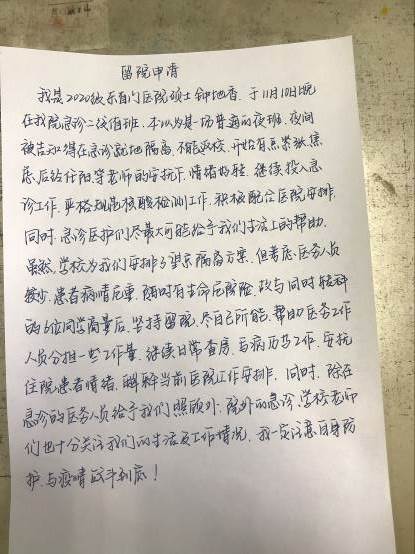 留院申请
我是2020级东直门医院硕士钟地香,于11月10日晚
在我院急诊二线值班,本以为是一场普通的夜班,夜间
被告知得在急诊就地隔离,不能返校,开始有点紧张焦
虑,后经仔阳等老师的安抚下,情绪好转,继续投入急
诊工作,严格规范核酸检测工作,积极配合医院安排,
同时,急诊医护们尽最大可能给予我们生活上的帮助.
虽然,学校为我们安排了望京隔离方案,但考虑医务人员
较少,患者病情危重,随时有生命危险,故与同时转科
的6位同学商量后,坚持留院,尽自己所能,帮助医务工作
人员分担一些工作量,继续日常查房、写病历等工作,安抚
住院患者情绪,解释当前医院工作安排,同时,除在
急诊的医务人员给予我们照顾外,院外的急诊、学校老师
们也十分关注我们的生活及工作情况,我一定注意自身防
护,与疫情战斗到底!